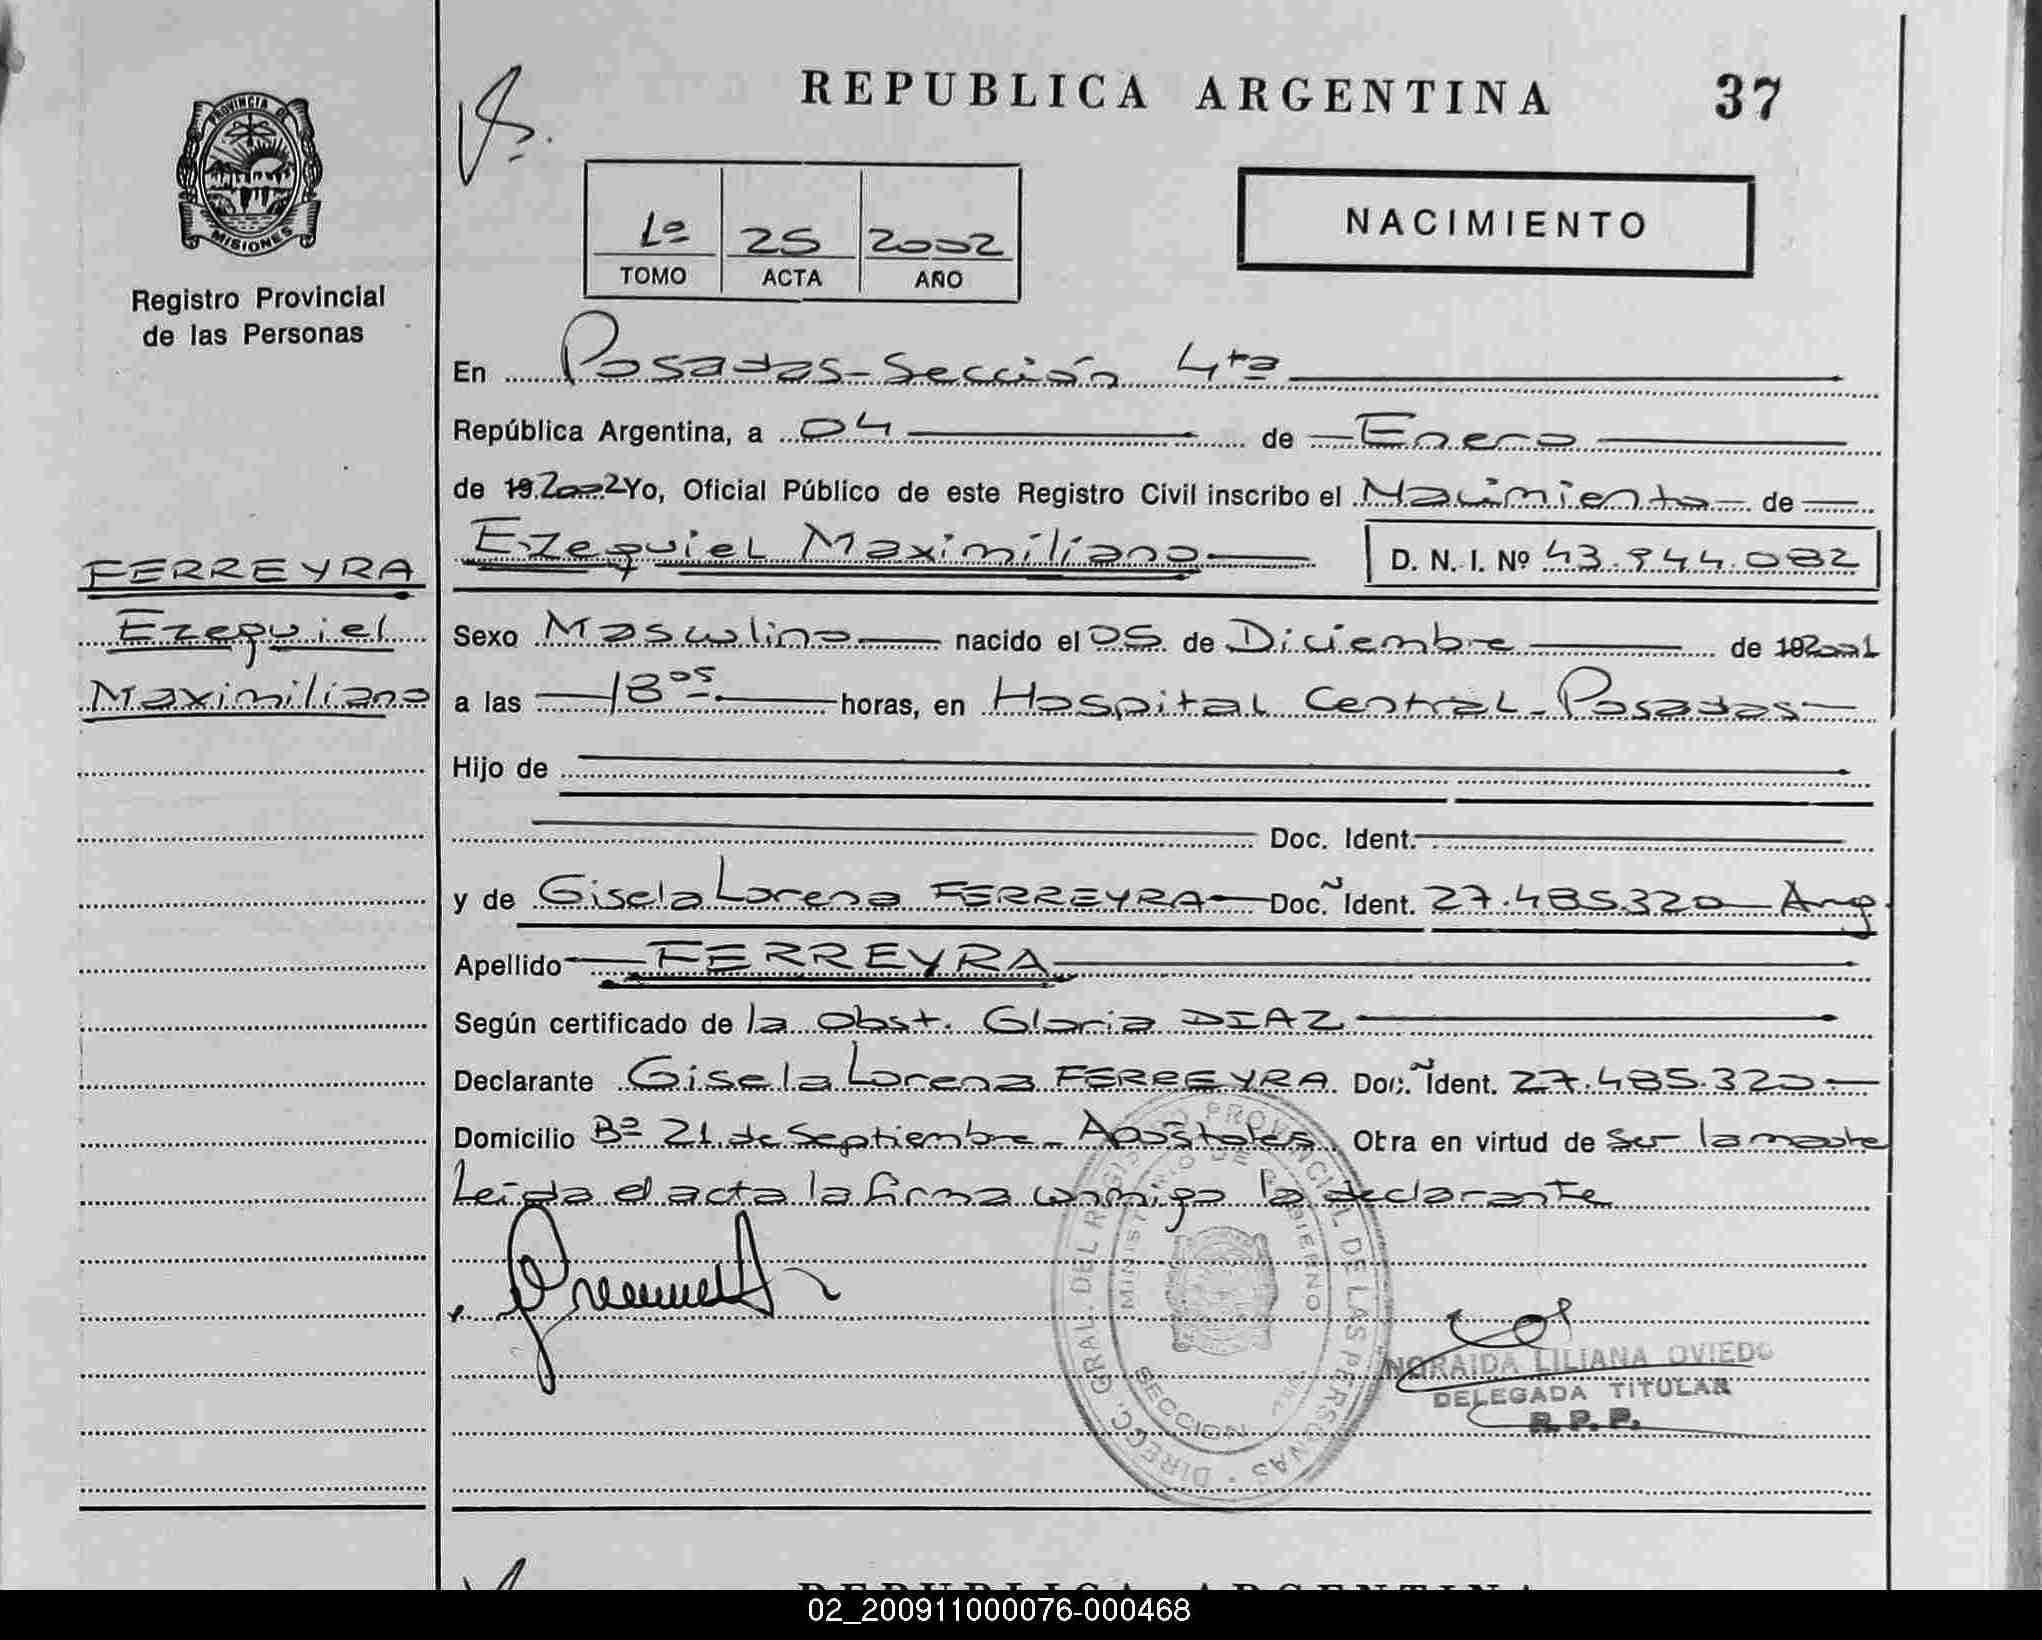 REPUBLICA ARGENTINA 37
PROVINCIA DE
MISIONES
Registro Provincial
de las Personas
1º 25 2002
TOMO ACTA AÑO
NACIMIENTO
En Posadas-Sección 4ta
República Argentina, a 04 de Enero
de 19 2002 Yo, Oficial Público de este Registro Civil inscribo el Nacimiento de
Ezequiel Maximiliano D. N. I. Nº 43.944.082
FERREYRA
Ezequiel
Maximiliano
Sexo Masculino nacido el 05 de Diciembre de 19 2001
a las 18 05 horas, en Hospital Central-Posadas
Hijo de
Doc. Ident.
y de Gisela Lorena FERREYRA Doc. Ñ Ident. 27.485.320 Arg
Apellido FERREYRA
Según certificado de la Obst. Gloria DIAZ
Declarante Gisela Lorena FERREYRA Doc. Ñ Ident. 27.485.320
Domicilio Bº 21 de Septiembre - Apóstoles Obra en virtud de Ser la madre
Leída el acta la firma conmigo la declarante
DIRECC. GRAL. DEL REGISTRO PROVINCIAL DE LAS PERSONAS
MINISTERIO DE GOBIERNO
SECCION
NORAIDA LILIANA OVIEDO
DELEGADA TITULAR
R. P. P.
REPUBLICA ARGENTINA
02_200911000076-000468